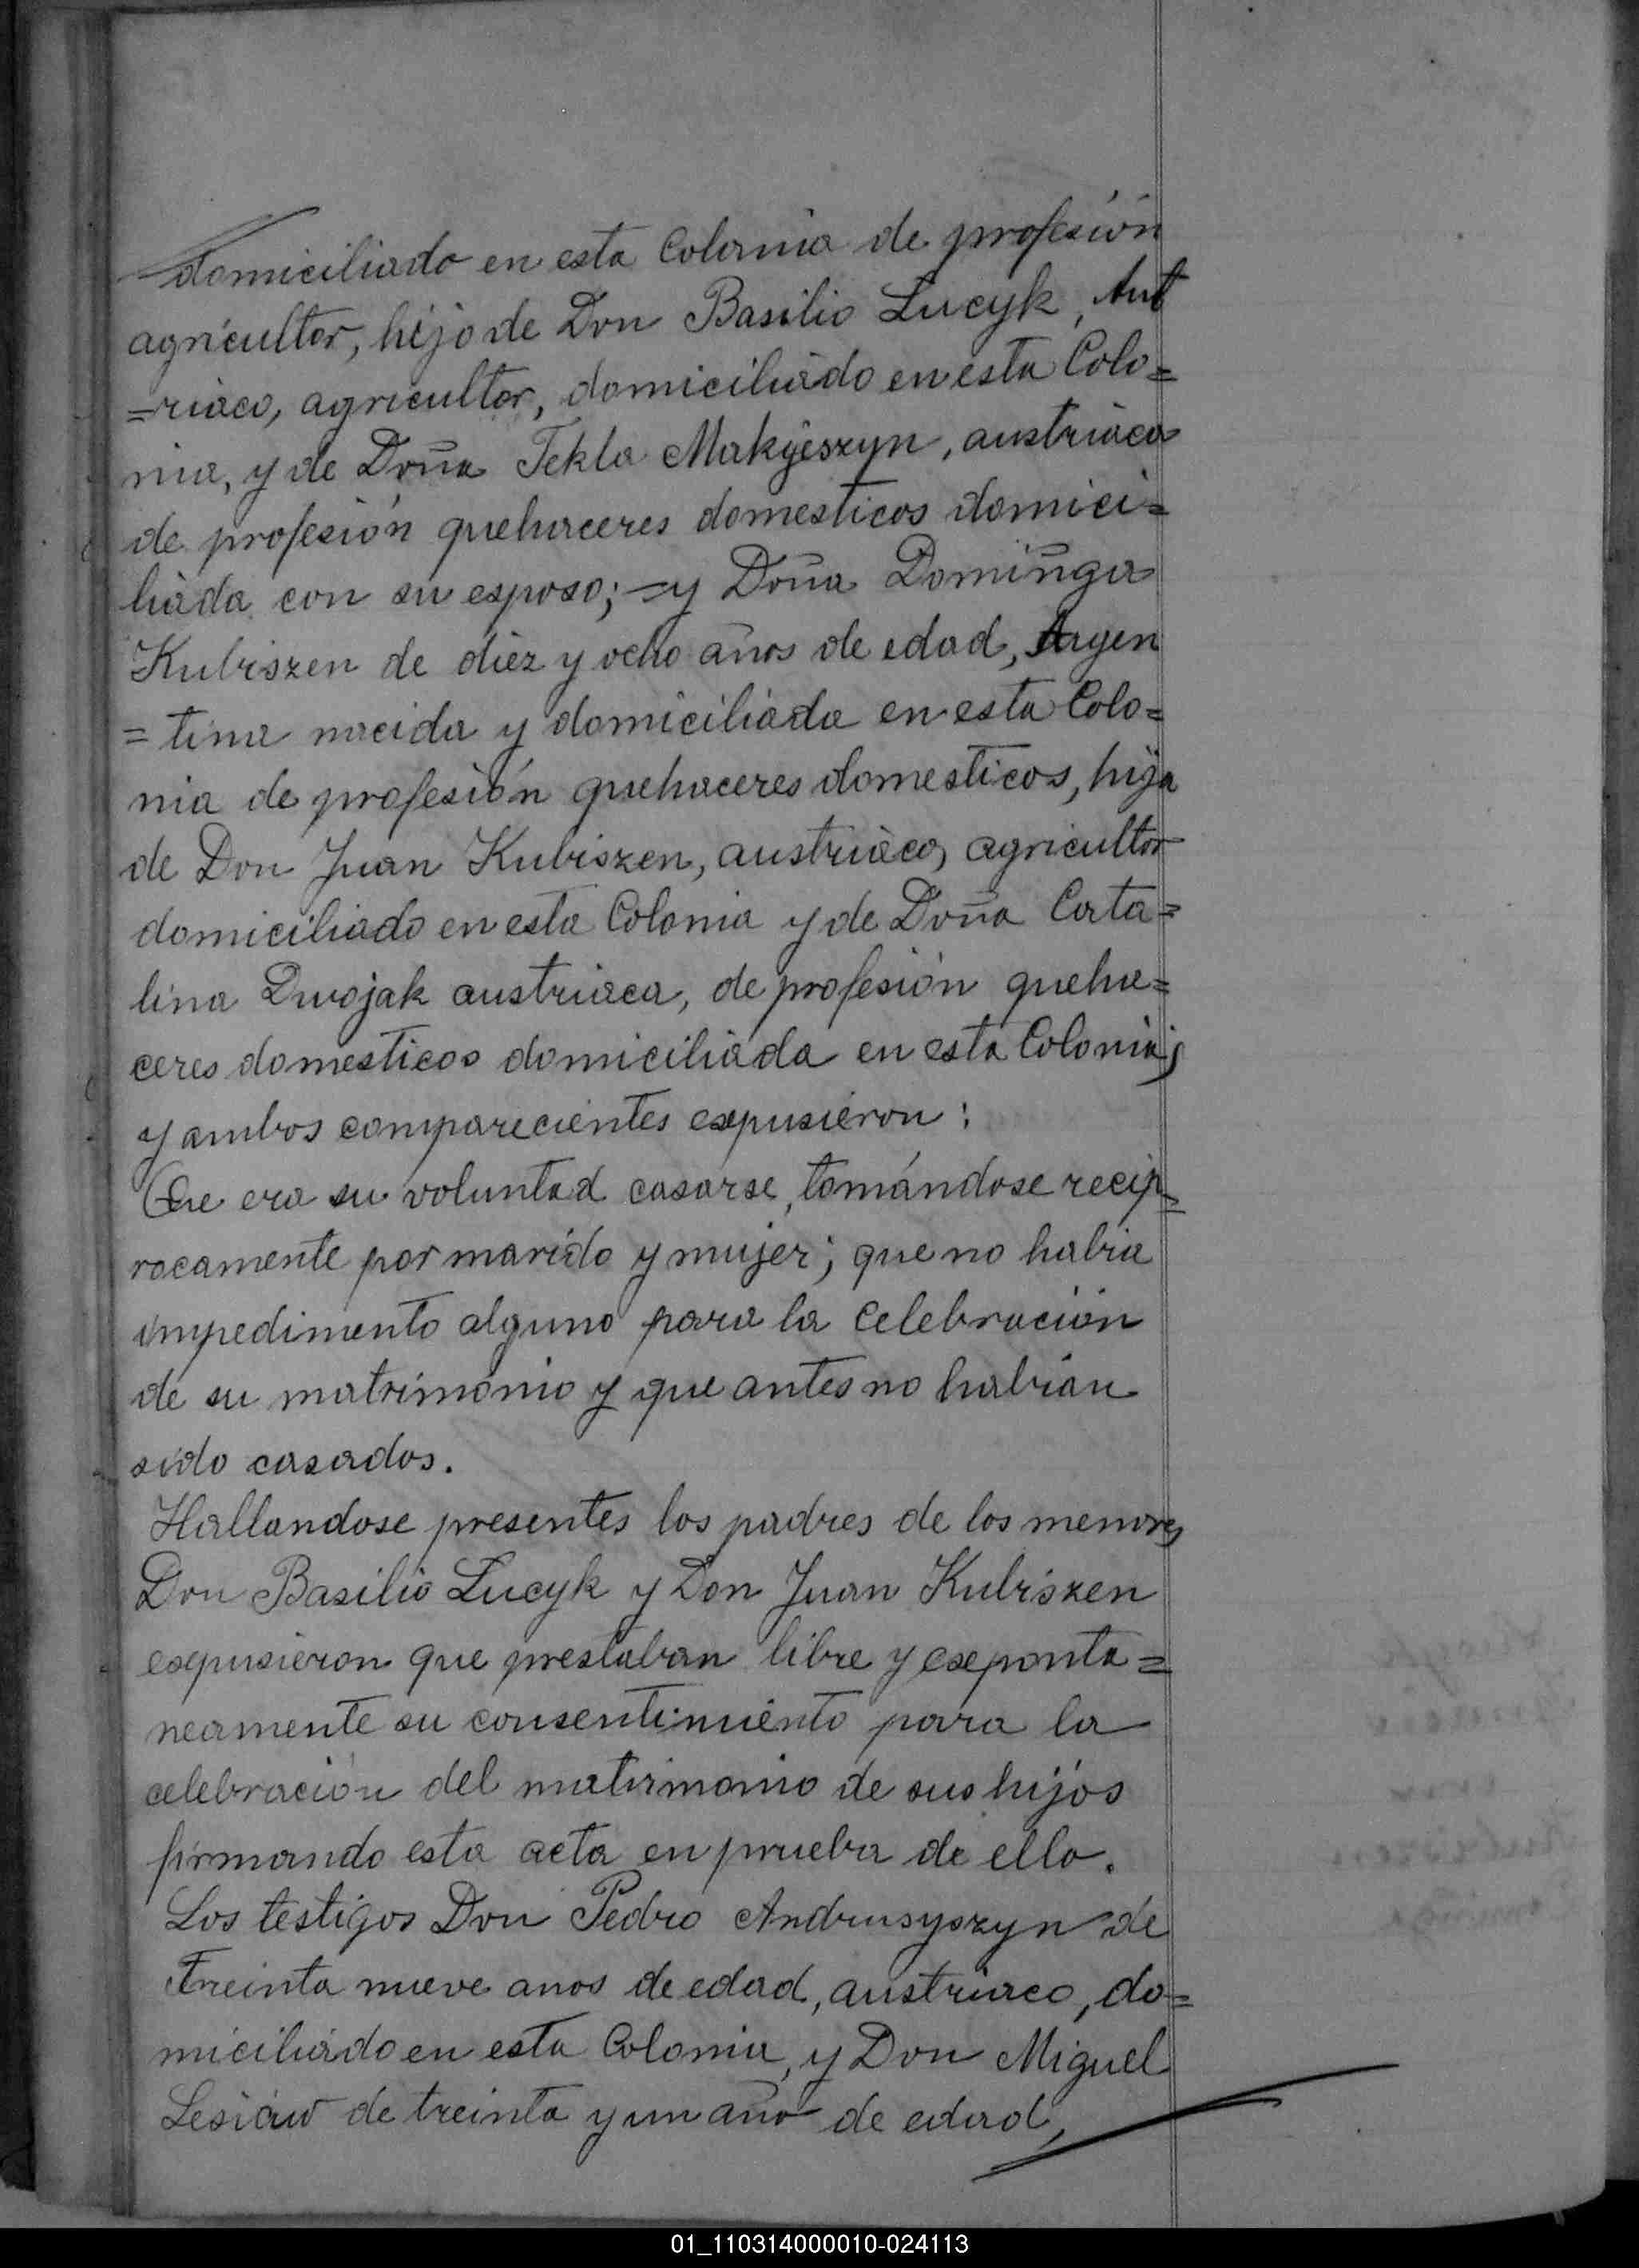 domiciliado en esta Colonia de profesión
agricultor, hijo de Don Basilio Lucyk, Aut
=riaco, agricultor, domiciliado en esta Colo=
nia, y de Doña Tekla Makyeszyn, austriaca
de profesión quehaceres domesticos domici=
liada con su esposo; = y Doña Dominga
Kubiszen de diez y ocho años de edad, Argen
= tina nacida y domiciliada en esta Colo=
nia de profesión quehaceres domesticos, hija
de Don Juan Kubiszen, austriaco, agricultor
domiciliado en esta Colonia y de Doña Cata=
lina Dwojak austriaca, de profesión queha=
ceres domesticos domiciliada en esta Colonia;
y ambos comparecientes expusieron:
Que era su voluntad casarse, tomándose recip=
rocamente por marido y mujer; que no habia
impedimento alguno para la celebración
de su matrimonio y que antes no habian
sido casados.
Hallandose presentes los padres de los menores
Don Basilio Lucyk y Don Juan Kubiszen
expusieron que prestaban libre y exponta=
neamente su consentimiento para la
celebración del matrimonio de sus hijos
firmando esta acta en prueba de ello.
Los testigos Don Pedro Andrusyszyn de
treinta nueve anos de edad, austriaco, do=
miciliado en esta Colonia, y Don Miguel
Lesiów de treinta y un año de edad,
01_110314000010-024113